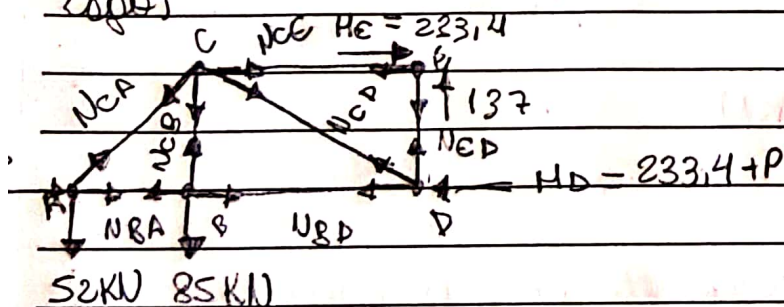 C NCE HE = 233,4
E
NCA NCB NCD 137
NED
HD = 233,4+P
A NBA B NBD D
52KN 85KN